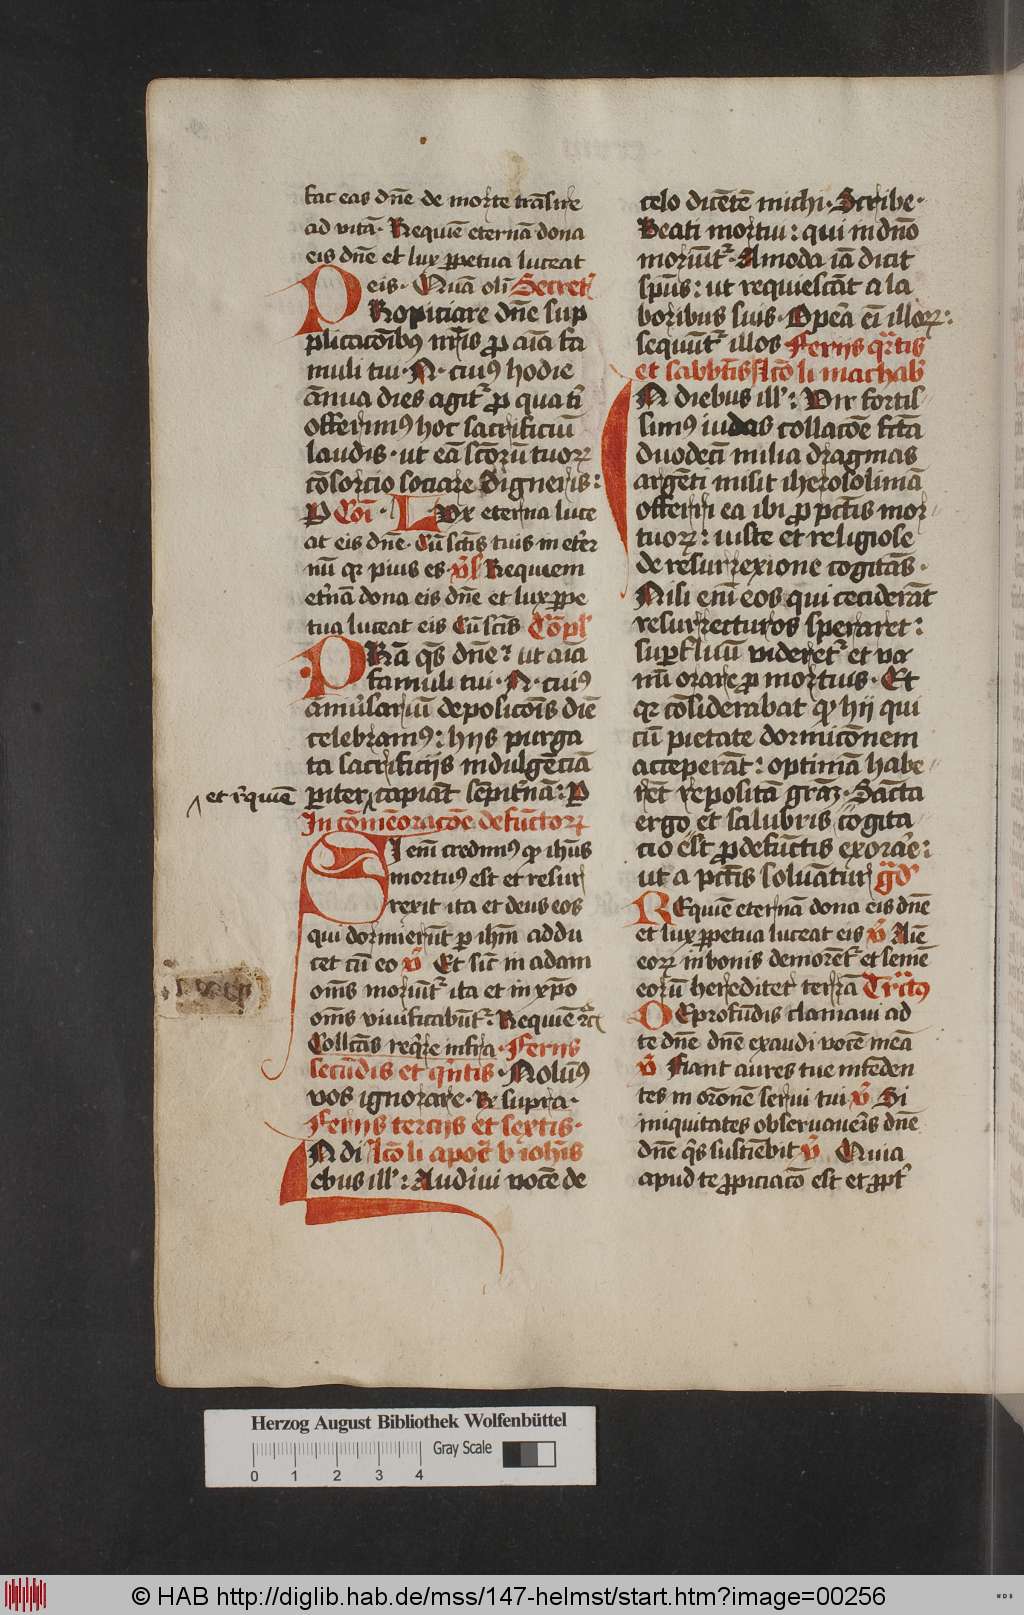 fac eas dn̄e de morte trāsire
ad vitā· Requiē eternā dona
eis dn̄e et lux ꝑpetua luceat
eis· Quā oli Secret
PRopiciare dn̄e sup
plicacōibꝰ nr̄is ꝓ aīa fa
muli tui· N· cuiꝰ hodie
ānua dies agit̄ ꝓ qua ti
offerimꝰ hoc sacrificiū
laudis· ut eā sctōrū tuoꝝ
cōsorcio sociare digneris:
P Coī· LVx eterna luce
at eis dn̄e· Cū sctīs tuis in eter
nū qꝛ pius es· vs̄ Requiem
et̄nā dona eis dn̄e et lux ꝑpe
tua luceat eis Cū scīs Cōpl
PRā qs̄ dn̄e: ut aīa
famuli tui· N· cuiꝰ
anīusariū deposicōis diē
celebramꝰ: hijs purga
ta sacrificijs indulgēciā
et r̄quiē
ꝑiter capiāt sēpit̄nā: P
In cōmēoracōe defūctoꝝ
SI enī credimꝰ qꝫ ihūs
mortuꝰ est et resur
rexit ita et deus eos
qui dormierūt ꝑ ihm̄ addu
cet cū eo v̄ Et sic̄ in adam
om̄s moriūt̄ ita et in xp̄o
om̄s vivificabūt̄· Requiē ꝛc̄
Collcās reqr̄e infra· Ferijs
secūdis et qn̄tis· Nolumꝰ
vos ignorare· Re supra·
Ferijs tercijs et sextis·
IN di lcō li apoc̄ b iohīs
ebus ill̄: Audivi vocē de
celo dicētē michi· Scribe·
Beati mortui: qui in dn̄o
moriūt̄· Amodo iā dicit
sp̄us: ut requiescāt a la
boribus suis· Opeā eī illoꝝ:
sequūt̄ illos Ferijs qr̄tis
et sabbt̄is lcō li machab̄
IN diebus ill̄: Vir fortis
simꝰ iudas collacōe fctā
duodecī milia dragmas
argēti misit iherosolimā
offerri ea ibi ꝓ pcc̄tis mor
tuoꝝ: iuste et religiose
de resurrexione cogitās·
Nisi enī eos qui ceciderāt
resurrecturos speraret:
suꝑfluū videret̄ et va
nū orare ꝓ mortuis· Et
qꝛ cōsiderabat qꝫ hij qui
cū pietate dormicōnem
acceperāt: optimā habe
rēt repositā grāꝫ· Sācta
ergo et salubris cogita
cio est ꝓ defūctis exorar̄e:
ut a pcc̄tis solvāntur gd
REquiē eternā dona eis dn̄e
et lux ꝑpetua luceat eis v̄ Aīe
eoꝝ in bonis demorēt̄ et semē
eorū hereditet terrā Tract̄ꝰ
DE ꝓfūdis clamavi ad
te dn̄e dn̄e exaudi vocē meā
v̄ Fiant aures tue intēden
tes in orōnē servi tui v̄ Si
iniquitates observaveīs dn̄e
dn̄e qs̄ sustiēbit v̄ Quia
apud te ꝓpiciacō est et ꝓpt̄
Herzog August Bibliothek Wolfenbüttel
Gray Scale
0 1 2 3 4
© HAB http://diglib.hab.de/mss/147-helmst/start.htm?image=00256